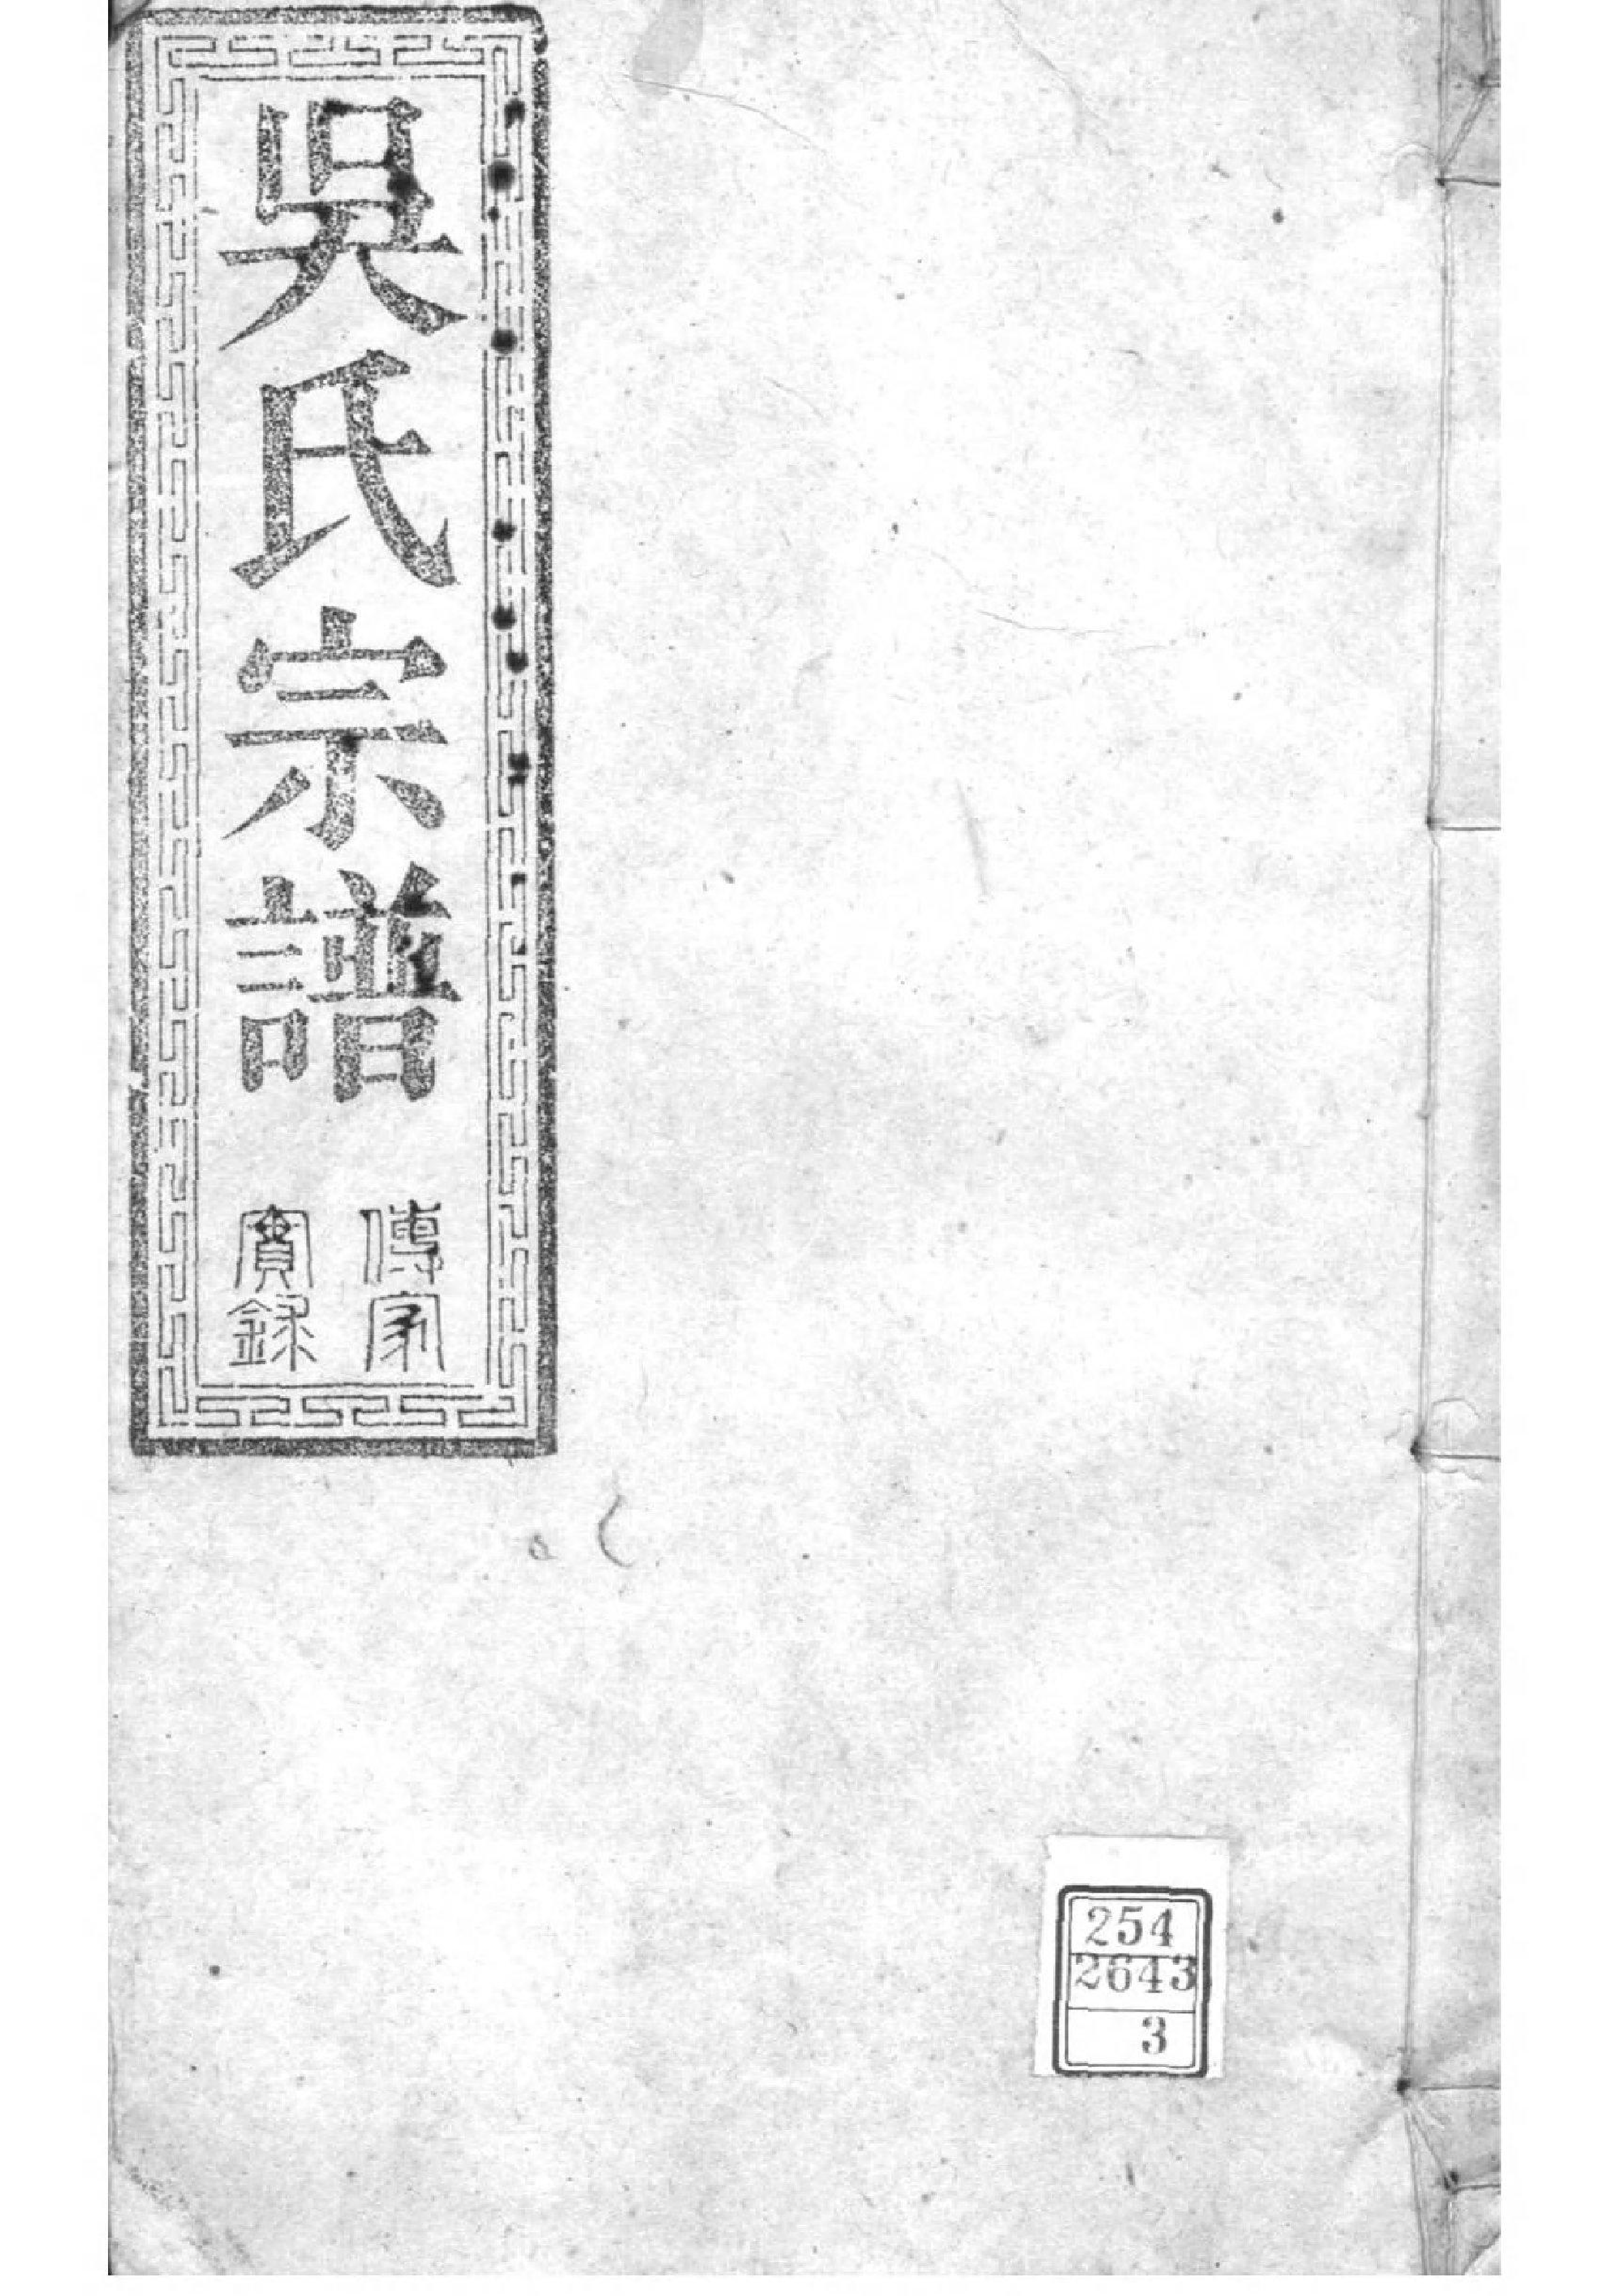 吳氏宗譜
傳家
實錄
254
2643
3